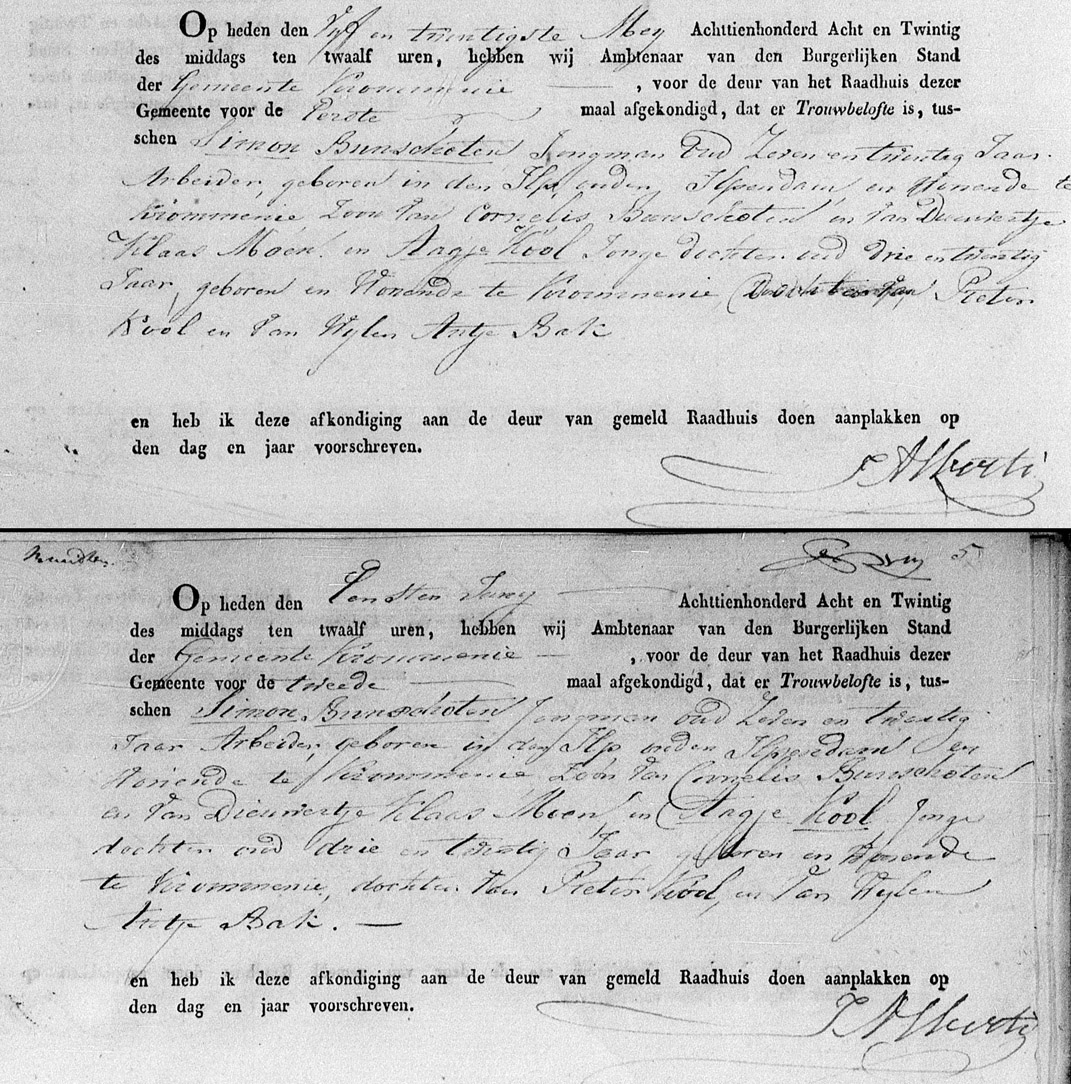 Op heden den Vijf en twintigste Mey Achttienhonderd Acht en Twintig
des middags ten twaalf uren, hebben wij Ambtenaar van den Burgerlijken Stand
der Gemeente Krommenie , voor de deur van het Raadhuis dezer
Gemeente voor de Eerste maal afgekondigd, dat er Trouwbelofte is, tus-
schen Simon Bunschoten Jongman Oud Zeven en twintig Jaar
Arbeider, geboren in den Ilp onder Ilpendam en Wonende te
Krommenie Zoon Van Cornelis Bunschoten en Van Dieuwertje
Klaas Moen en Aagje Kool Jonge dochter oud drie en twintig
Jaar, geboren en Wonende te Krommenie Dochter Van Pieter
Kool en Van Wylen Antje Bak
en heb ik deze afkondiging aan de deur van gemeld Raadhuis doen aanplakken op
den dag en jaar voorschreven.
J Alberti
5
Op heden den Eersten Juny Achttienhonderd Acht en Twintig
des middags ten twaalf uren, hebben wij Ambtenaar van den Burgerlijken Stand
der Gemeente Krommenie , voor de deur van het Raadhuis dezer
Gemeente voor de tweede maal afgekondigd, dat er Trouwbelofte is, tus-
schen Simon Bunschoten Jongman oud Zeven en twintig
Jaar Arbeider, geboren in den Ilp onder Ilpendam en
Wonende te Krommenie Zoon Van Cornelis Bunschoten
en Van Dieuwertje Klaas Moen, en Aagje Kool Jonge
dochter oud drie en twintig Jaar geboren en Wonende
te Krommenie, dochter Van Pieter Kool, en Van Wylen
Antje Bak.
en heb ik deze afkondiging aan de deur van gemeld Raadhuis doen aanplakken op
den dag en jaar voorschreven.
J Alberti